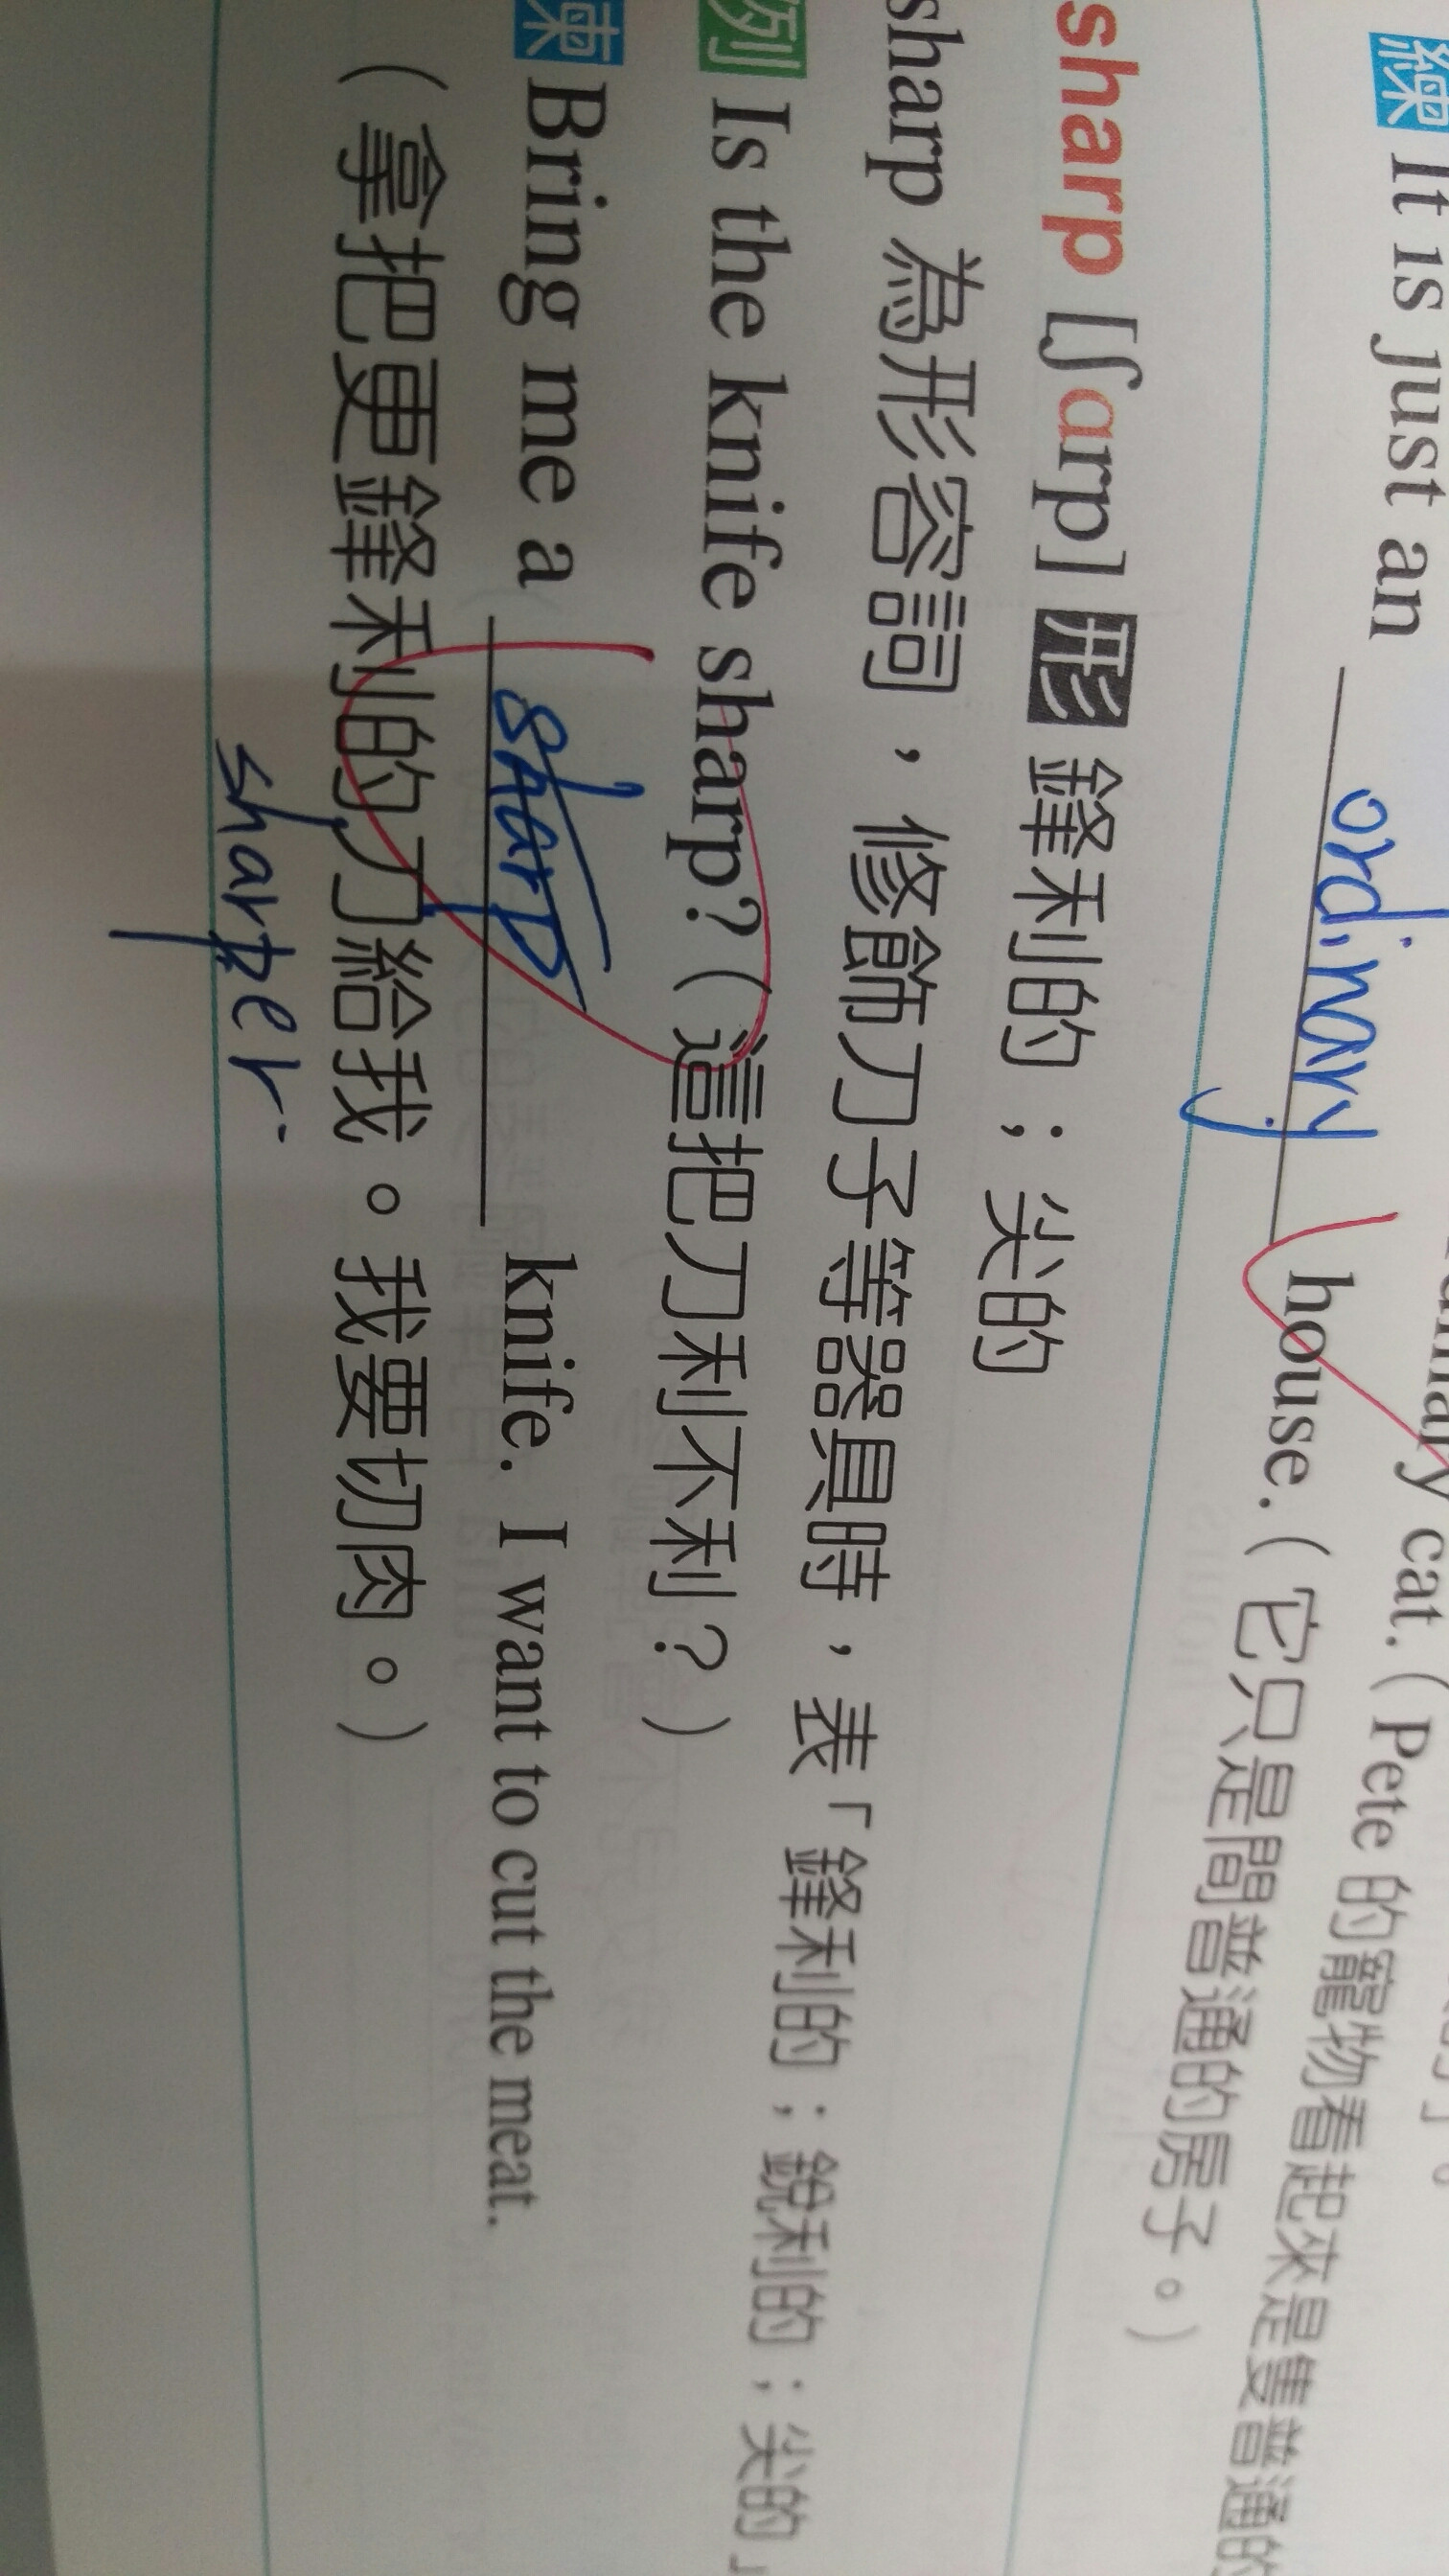 cat. (Pete 的寵物看起來是隻普通的
練 It is just an ordinary house. (它只是間普通的房子。)
sharp [ʃɑrp] 形 鋒利的；尖的
sharp 為形容詞，修飾刀子等器具時，表「鋒利的；銳利的；尖的」
例 Is the knife sharp? (這把刀利不利？)
練 Bring me a sharp knife. I want to cut the meat.
(拿把更鋒利的刀給我。我要切肉。)
sharper